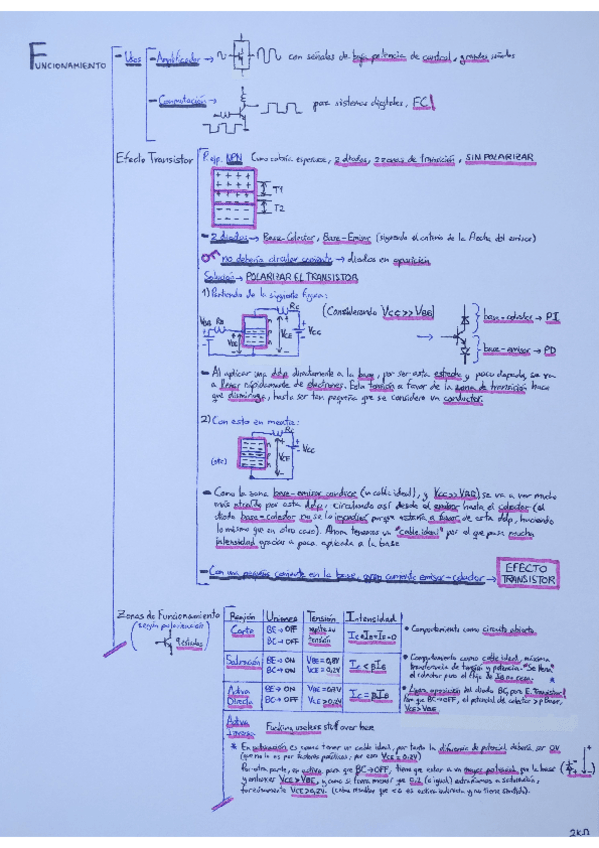 FUNCIONAMIENTO
Usos
Amplificador → con señales de baja potencia de control, grandes señales
Conmutación → para sistemas digitales, FC!
Efecto Transistor
P. ejp. NPN Como cabría esperarse, 2 diodos, 2 zonas de transición, SIN POLARIZAR
T1
T2
- 2 diodos → Base-Colector, Base-Emisor (siguiendo el criterio de la flecha del emisor)
no debería circular corriente → diodos en oposición
Solución → POLARIZAR EL TRANSISTOR
1) Partiendo de la siguiente figura:
(Considerando VCC>>VBB)
VBB RB VBE VCE RC VCC
base-colector → PI
base-emisor → PD
- Al aplicar una ddp directamente a la base, por ser esta estrecha y poco dopada, se va
a llenar rápidamente de electrones. Esta tensión a favor de la zona de transición hace
que disminuya, hasta ser tan pequeña que se considera un conductor.
2) Con esto en mente:
RC
VCE VCC
- Como la zona base-emisor conduce (un cable ideal), y VCC>>VBB, se va a ver mucho
más atraído por esta ddp, circulando así desde el emisor hasta el colector (el
diodo base-colector no se lo impediría porque estaría a favor de esta ddp, haciendo
lo mismo que en otro caso). Ahora tenemos un "cable ideal" por el que pasa mucha
intensidad gracias a poca aplicada a la base
- Con una pequeña corriente en la base, gran corriente emisor-colector → EFECTO TRANSISTOR
Zonas de Funcionamiento
(según polarización)
Región Uniones Tensión Intensidad
Corte BE → OFF BC → OFF tensión IC=IB=IE=0
• Comportamiento como circuito abierto
Saturación BE → ON BC → ON VBE = 0,8V VCE = 0,2V IC < βIB
• Comportamiento como cable ideal, máxima
transferencia de tensión y potencia. "Se
el colector pero el flujo de
Activa Directa BE → ON BC → OFF VBE = 0,7V VCE ≥ 0,2V IC = βIB
• Ligera oposición del diodo BC, por E. Transistor
BC → OFF, el potencial del colector
VCE>VBE
Activa Inversa Fucking useless stuff over here
* En saturación es como tener un cable ideal, por tanto la diferencia de potencial debería ser 0V
(que no lo es por factores prácticos, por eso VCE = 0.2V)
Por otra parte, en activa para que BC → OFF, tiene que estar a un mayor potencial que la base
y entonces VCE>VBE, y como si fuera menor que 0.2 (o igual) estaríamos en saturación,
forzosamente VCE>0,2V. (cabe resaltar que <0 es activa indirecta y no tiene sentido).
2KΩ